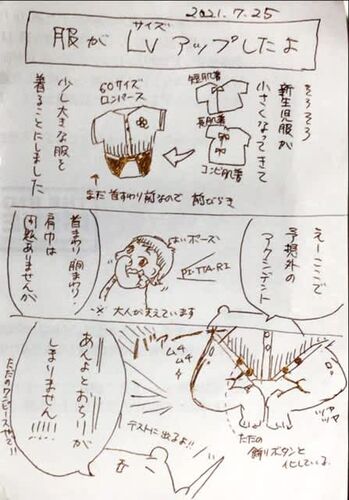 2021.7.25
服が Lv アップしたよ
サイズ
そろそろ
新生児服が
小さくなってきて
短肌着
長肌着
コンビ肌着
60サイズ
ロンパース
少し大きな服を
着ることにしました
まだ首すわり前なので 前びらき
えーここで
予想外の
アクシデント
はいポーズ
PI・TTA・RI
※大人が支えています
首まわり胴まわり
肩巾は
問題ありませんが
バアーン
ムチ
ムチ
ムチ
ツヤ
ツヤ
ただの
飾りボタンと
化している。
あんよとおちりが
しまりません!!!!
テストに出るよ!!
ただのワンピースやて!!